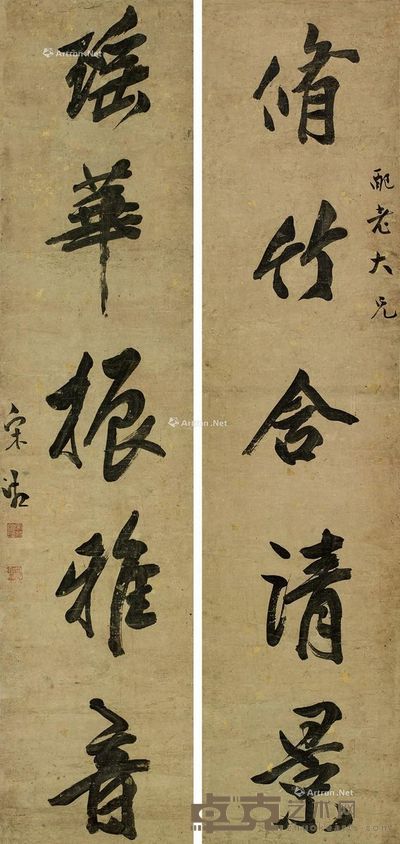 配老大兄
脩竹含清景
瑶華振雅音
宋湘
Artron.Net
Artron.Net
Artron.Net
Artron.Net
卓克艺术网